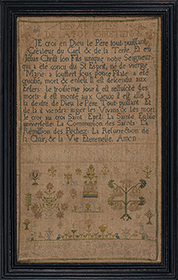 JE croi en Dieu le Pere tout puissant
Createur du Ciel & de la Terre Et en
Jesus Christ son Fils unique notre Seigneur
qui a été concu du St Esprit né de vierge
Marie a souffert sous Ponce Pilate a été
crucifié mort & enseli Il est descendu aux
Enfers le troisieme jour il est resuscité des
morts il est monté aux Cieux il est assis a
la dextre de Dieu le Pere tout puissant
de la il viendra juger les Vivans & les morts
Je croi au St Esprit La Sainte Eglise
universelle La Communion des Saints La
Remission des Pechez La Resurrection de
Chair & la Vie Eternelle Amen